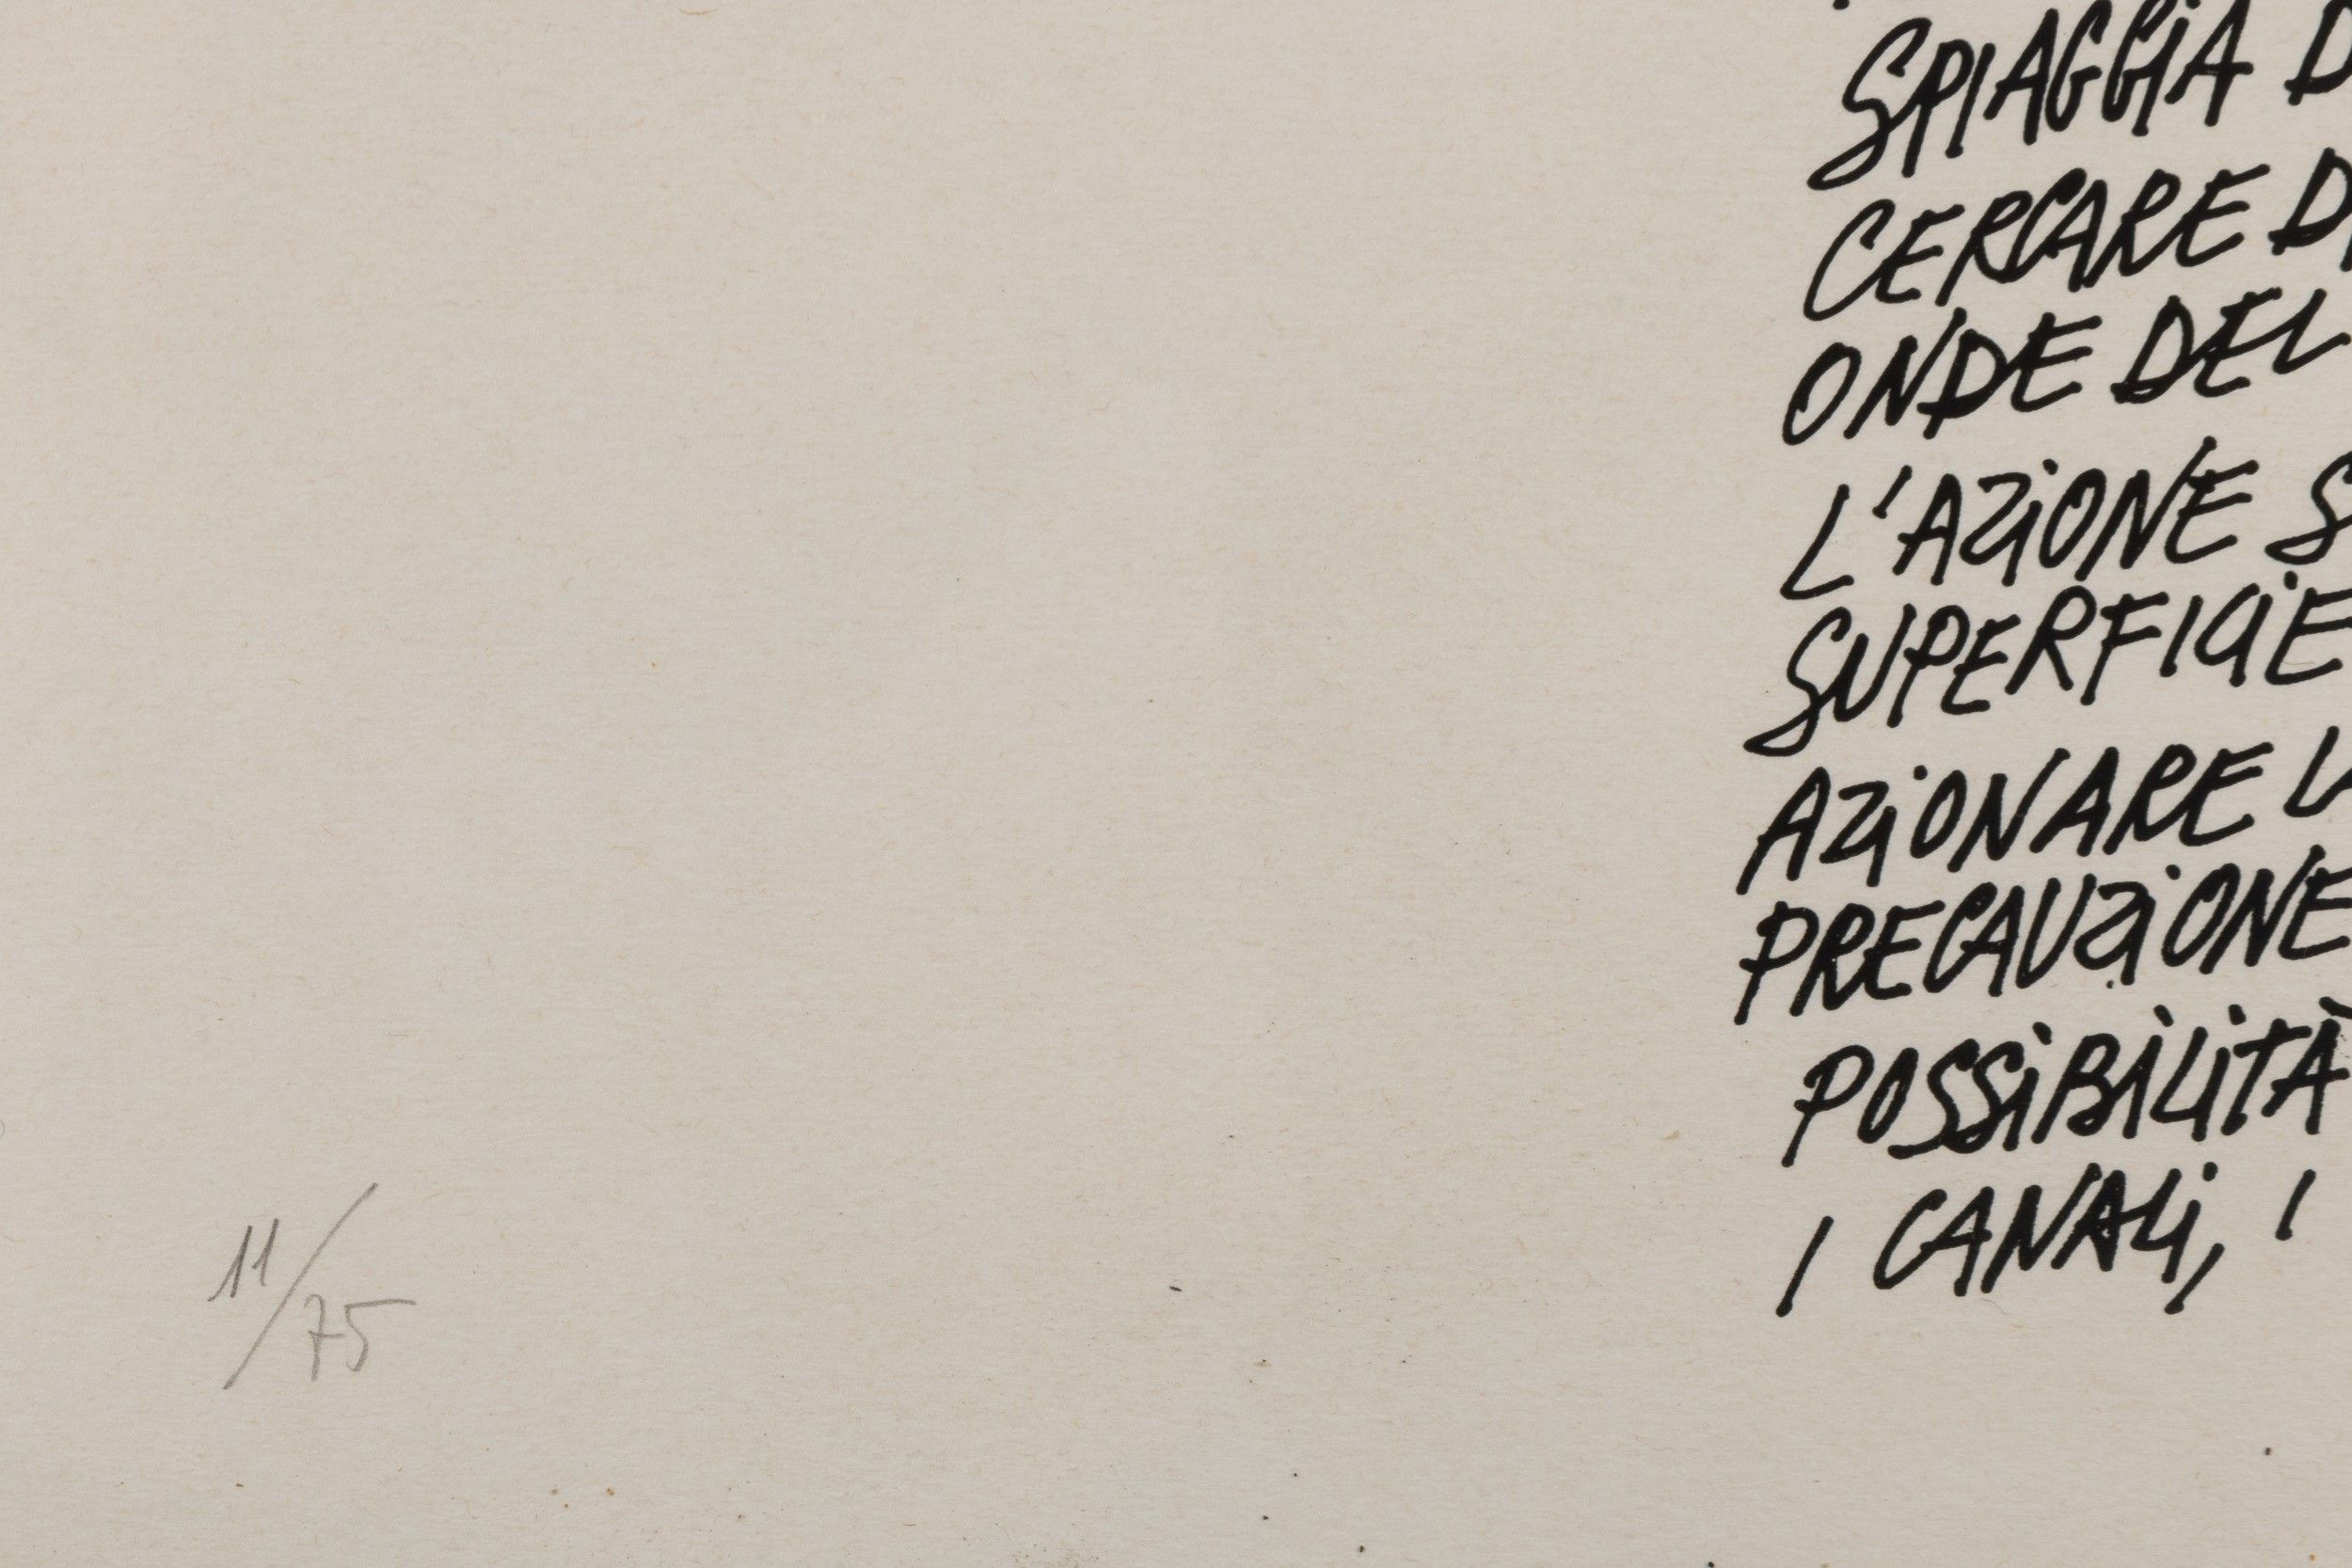 SPIAGGIA D
CERCARE DI
ONDE DEL
L'AZIONE S
SUPERFICIE
AZIONARE L
PRECAUZIONE
POSSIBILITÀ
I CANALI, I
11/75